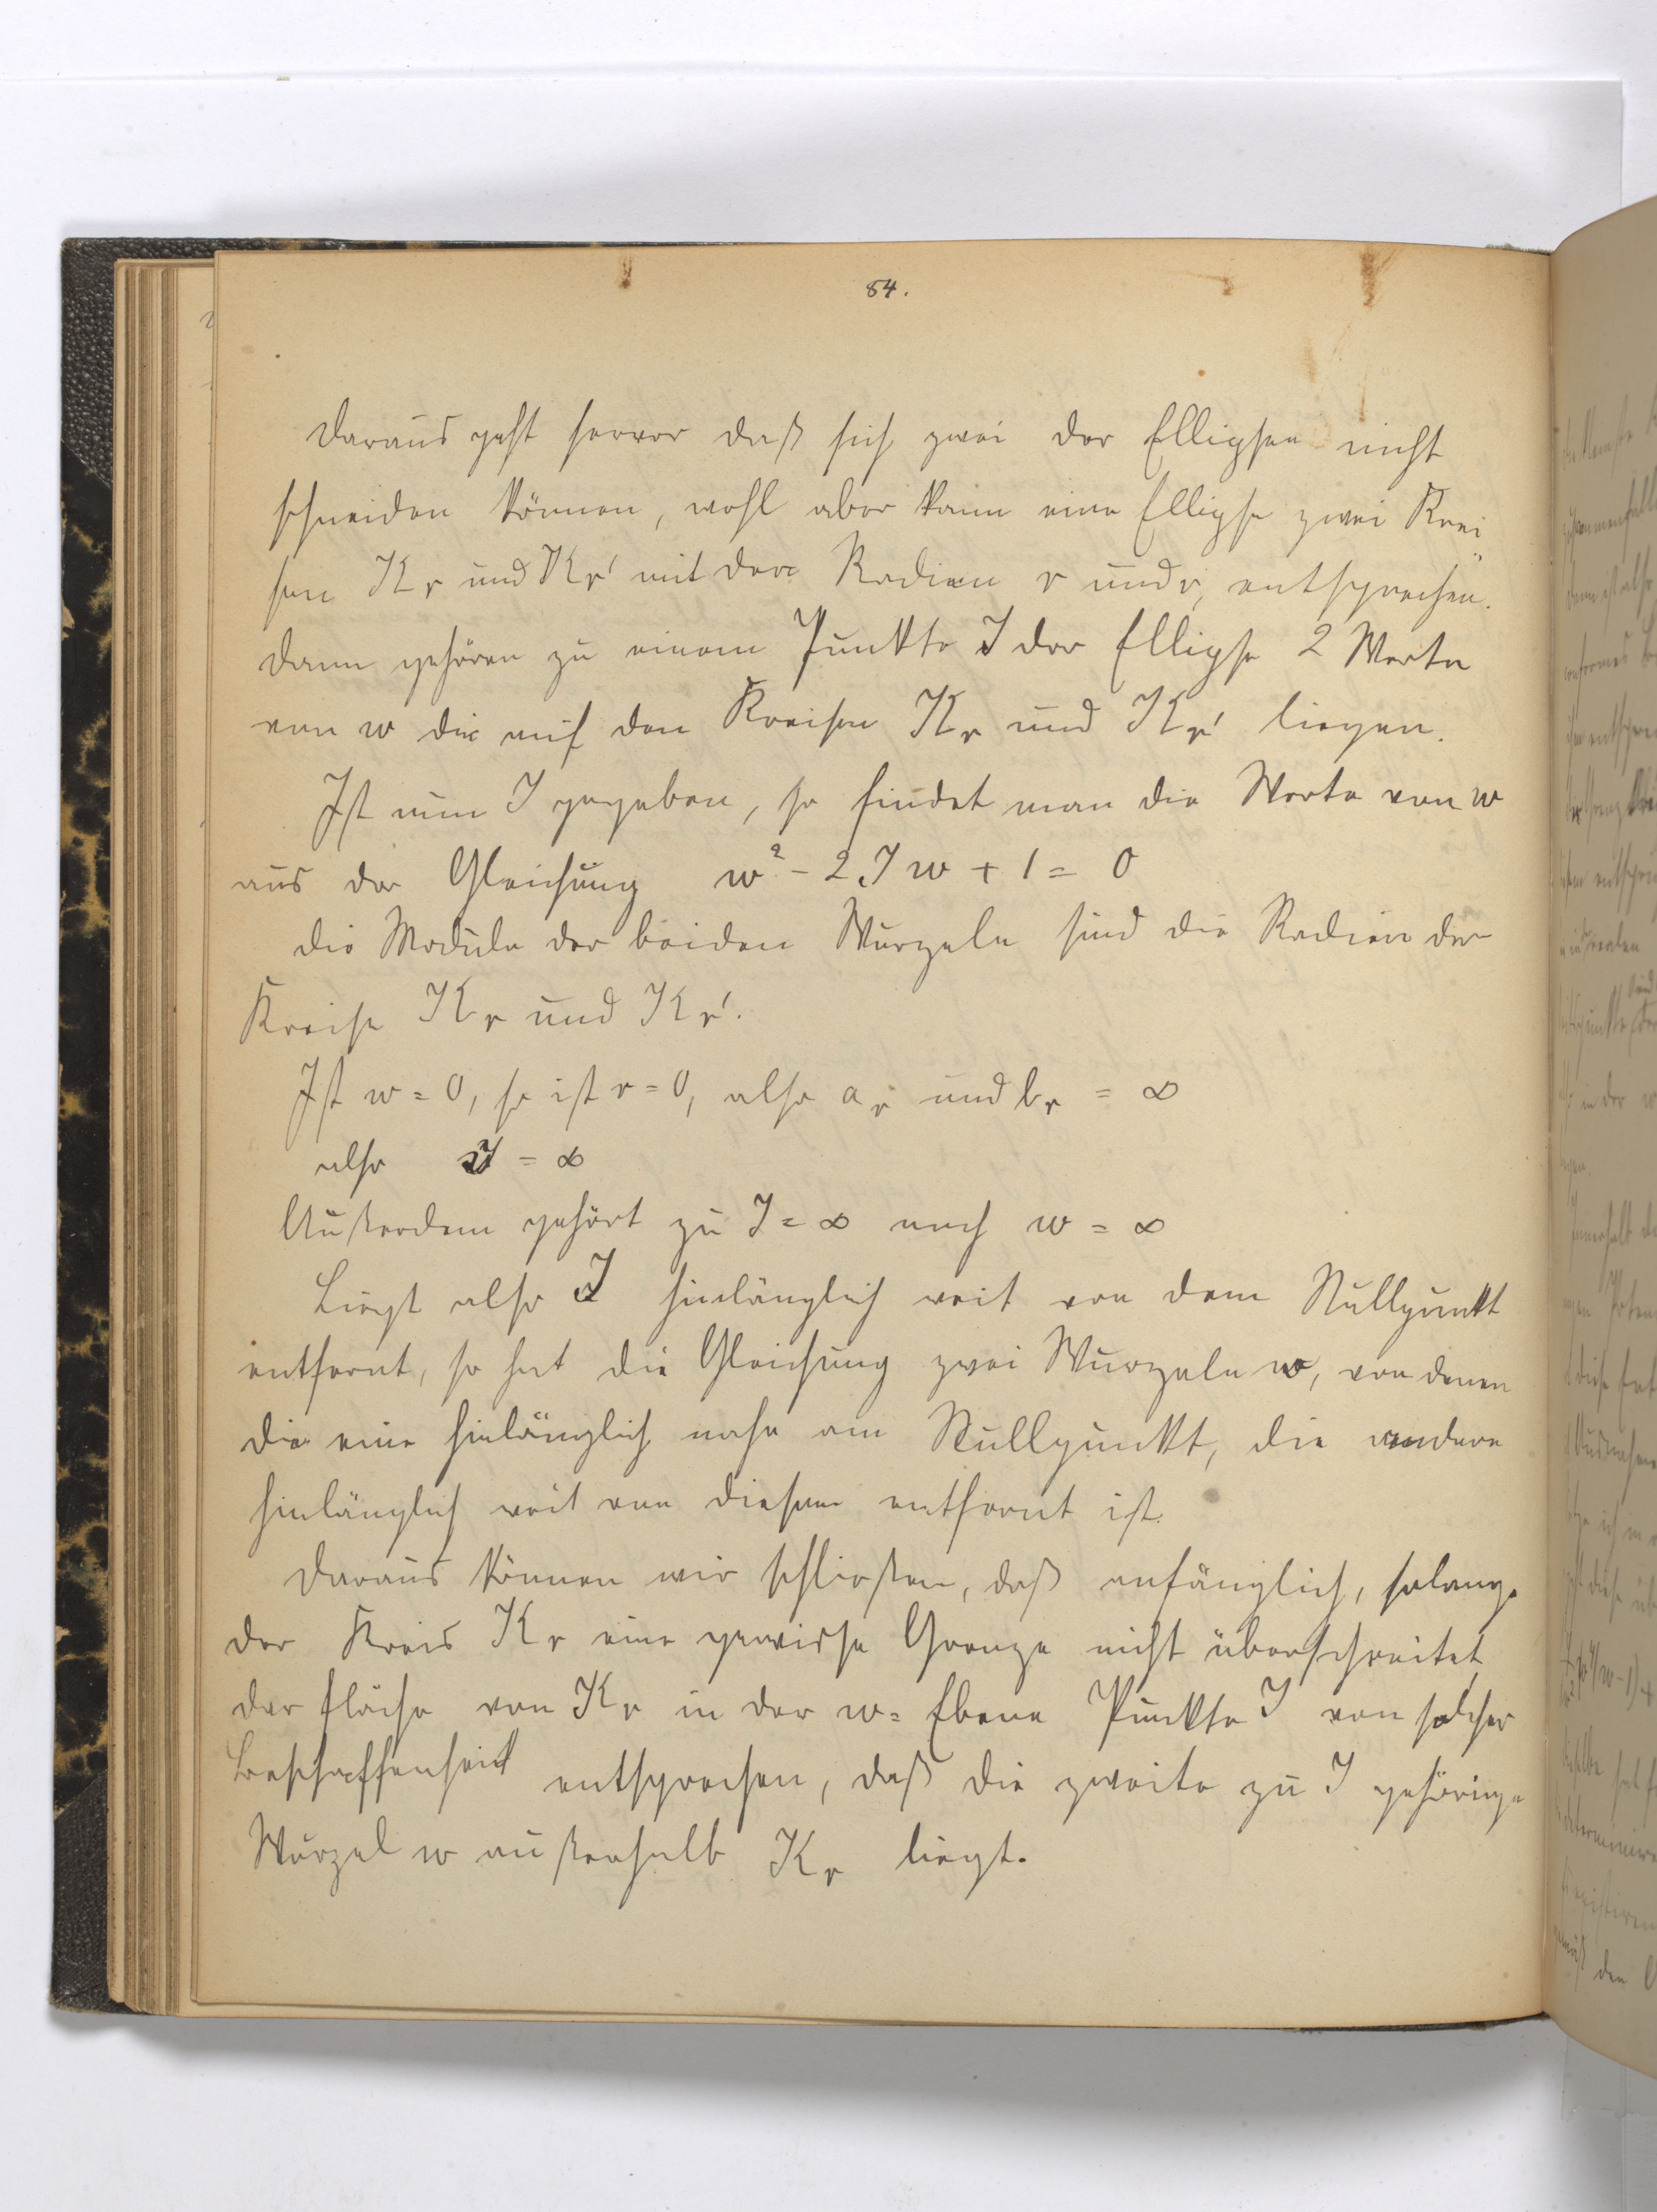 84.
Daraus geht hervor daß sich zwei der Ellipsen nicht
schneiden können, wohl aber kann eine Ellipse zwei Krei
sen K_r und K_r' mit den Radien r und r, entsprechen.
Dann gehören zu einem Punkte J der Ellipse 2 Werte
von w die auf den Kreisen K_r und K_r' liegen.
Ist nun J gegeben, so findet man die Werte von w
aus der Gleichung w² - 2Jw + 1 = 0
die Module der beiden Wurzeln sind die Radien der
Kreise K_r und K_r'.
Ist w = 0, so ist r = 0, also a_r und b_r = ∞
also J = ∞
Außerdem gehört zu J = ∞ noch w = ∞
Liegt also J hinlänglich weit von dem Nullpunkt
entfernt, so hat die Gleichung zwei Wurzeln w, von denen
die eine hinlänglich nahe am Nullpunkt, die andere
hinlänglich weit von diesem entfernt ist.
Daraus können wir schließen, daß anfänglich, solange
der Kreis K_r eine gewisse Grenze nicht überschreitet,
der Fläche von K_r in der w=Ebene Punkte J von solcher
Beschaffenheit entsprechen, daß die zweite zu J gehörige
Wurzel w außerhalb K_r liegt.